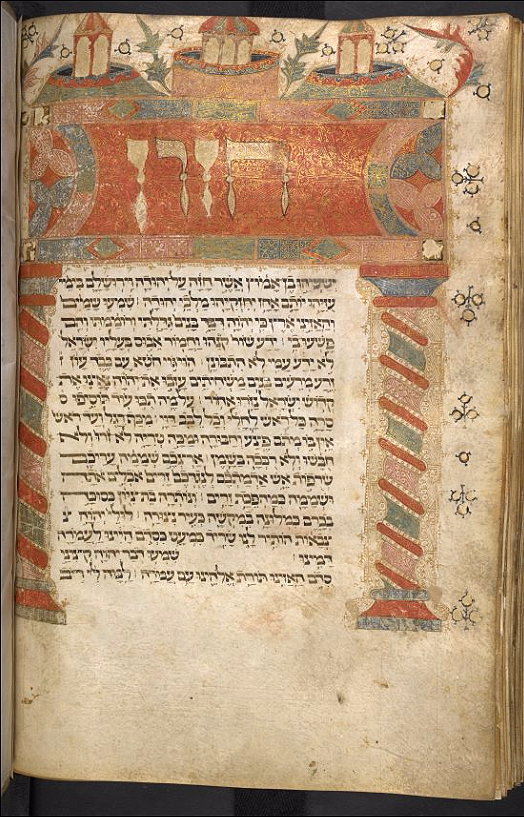 חזון
ישעיהו בן אמוץ אשר חזה על יהודה וירושלם בימי
עזיהו יותם אחז יחזקיהו מלכי יהודה׃ שמעו שמים
והאזיני ארץ כי יהוה דבר בנים גדלתי ורוממתי והם
פשעו בי׃ ידע שור קנהו וחמור אבוס בעליו ישראל
לא ידע עמי לא התבונן׃ הוי גוי חטא עם כבד עון
זרע מרעים בנים משחיתים עזבו את יהוה נאצו את
קדוש ישראל נזרו אחור׃ על מה תכו עוד תוסיפו ס
סרה כל ראש לחלי וכל לבב דוי׃ מכף רגל ועד ראש
אין בו מתם פצע וחבורה ומכה טריה לא זרו ולא
חבשו ולא רככה בשמן׃ ארצכם שממה עריכם
שרפות אש אדמתכם לנגדכם זרים אכלים אתה
ושממה כמהפכת זרים׃ ונותרה בת ציון כסוכה
בכרם כמלונה במקשה כעיר נצורה׃ לולי יהוה צ
צבאות הותיר לנו שריד כמעט כסדם היינו לעמרה
דמינו׃ שמעו דבר יהוה קציני
סדם האזינו תורת אלהינו עם עמרה׃ למה לי רוב